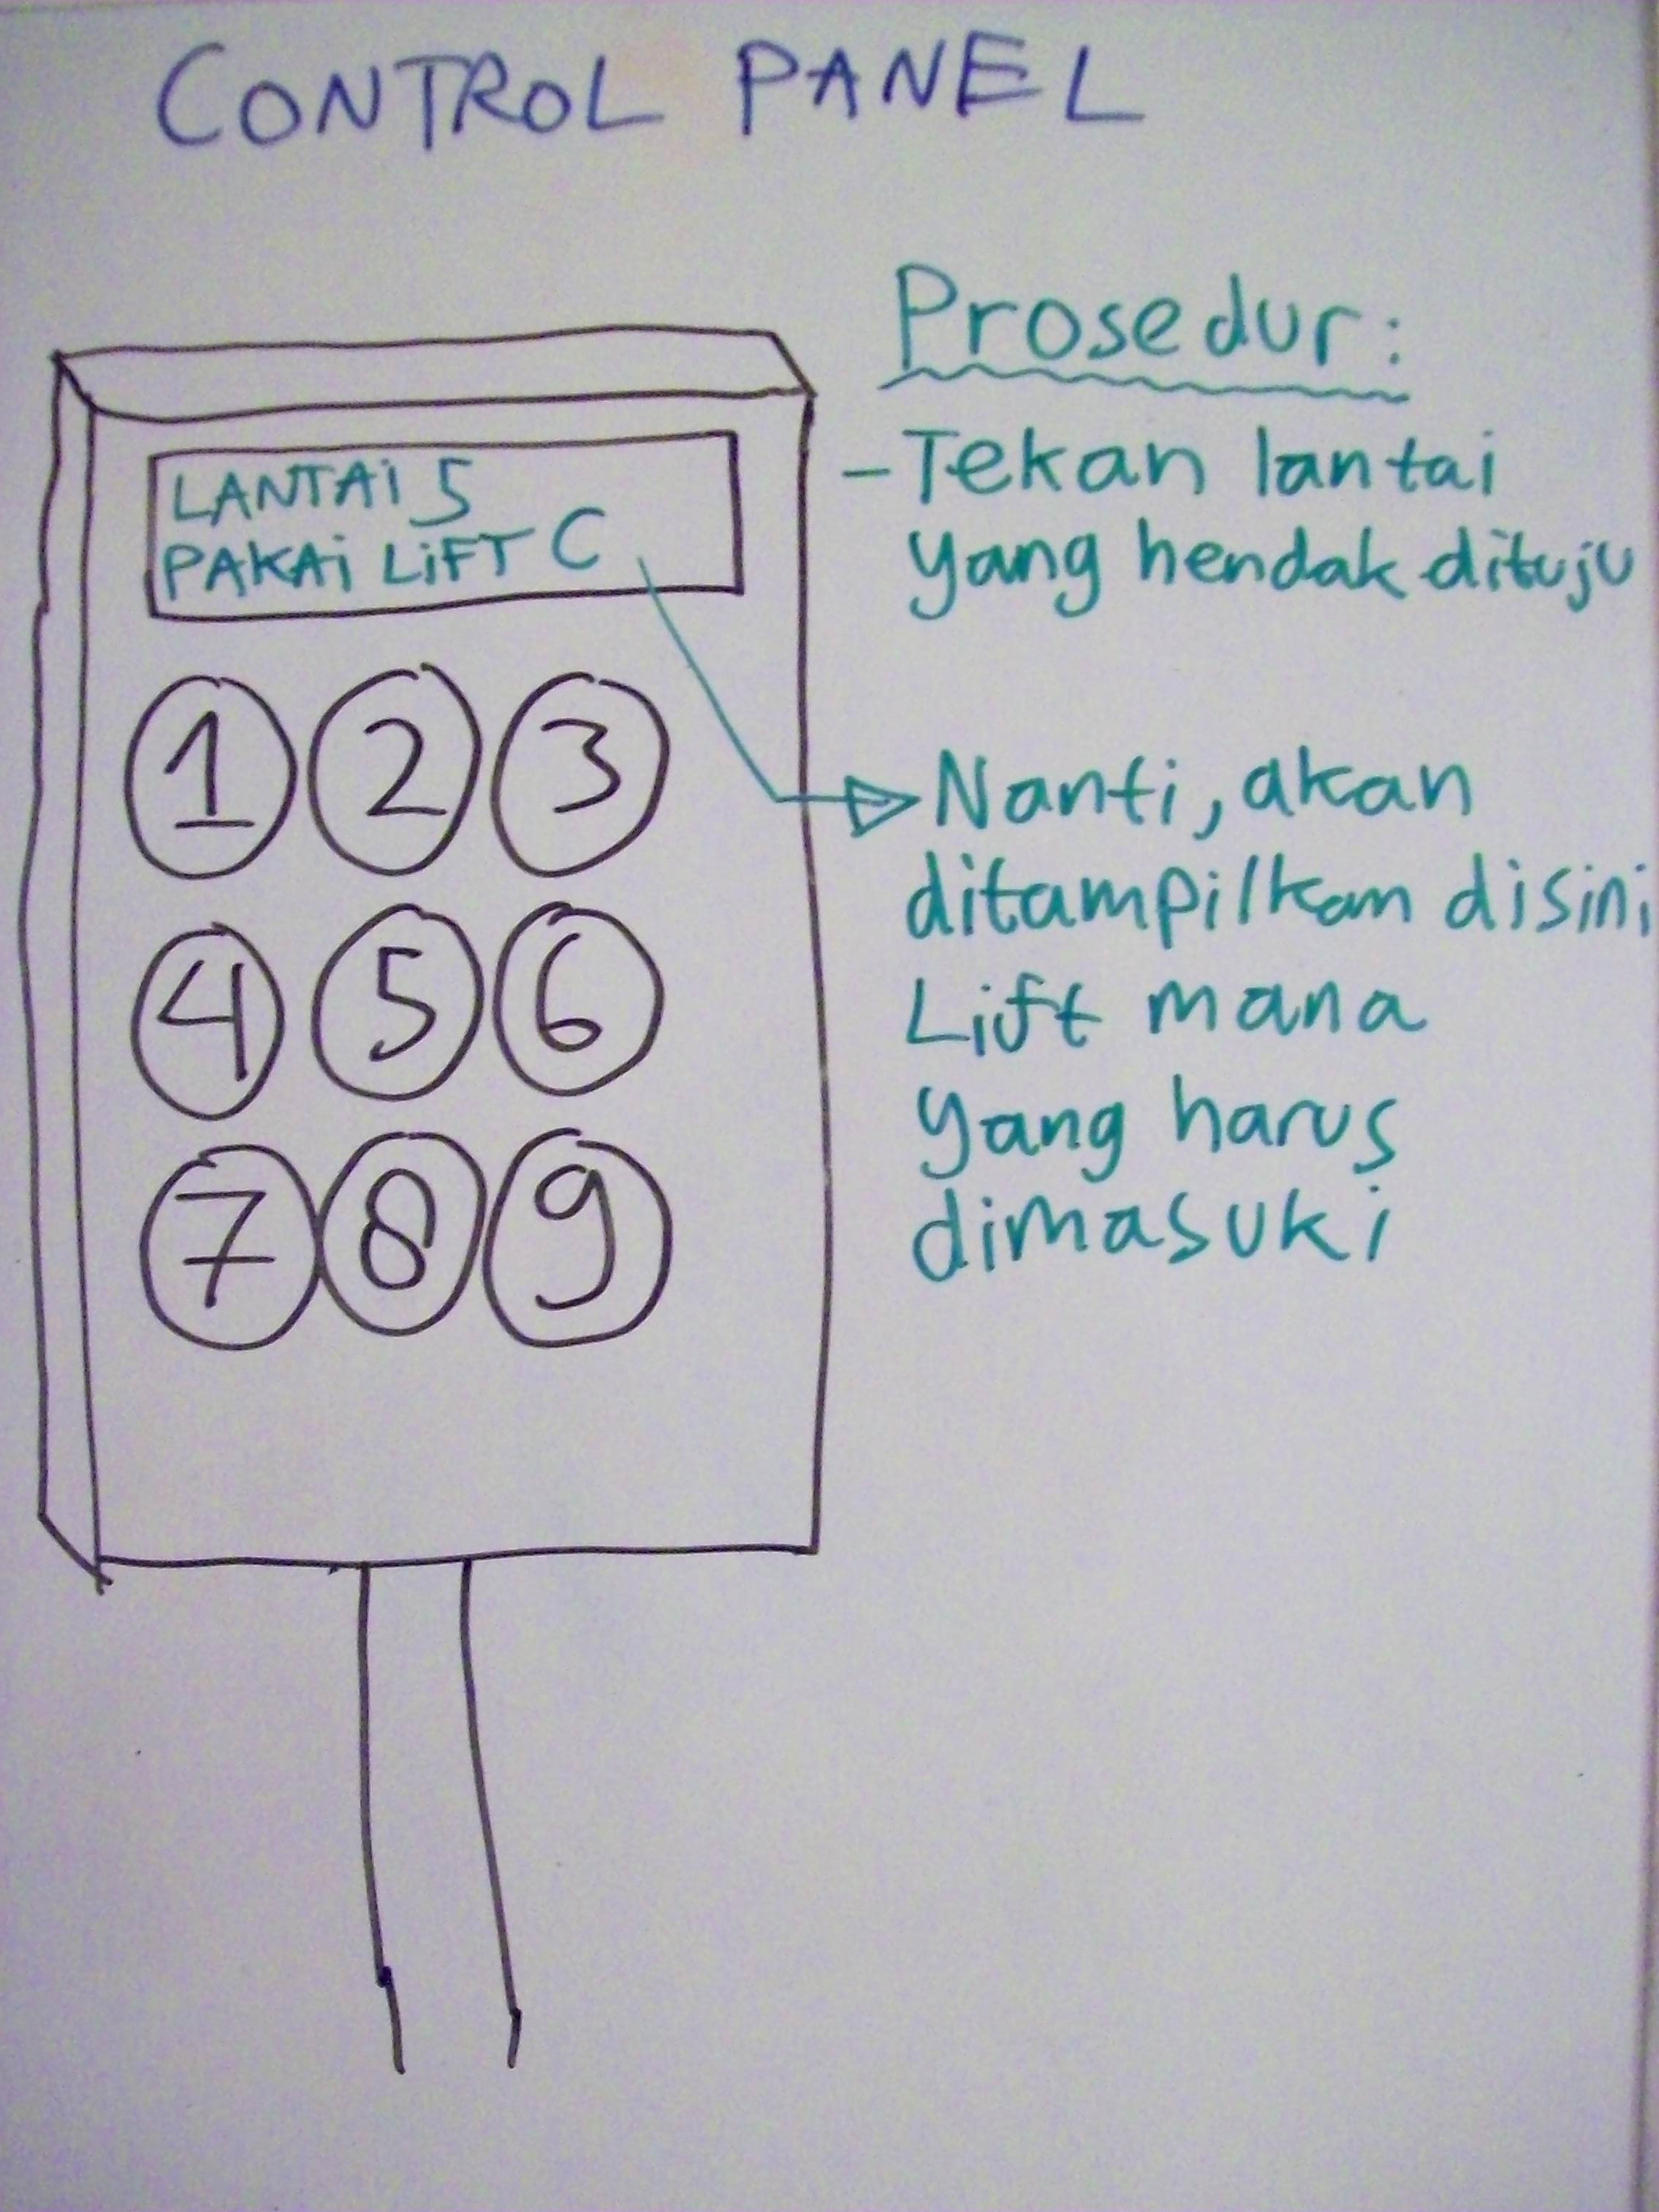 CONTROL PANEL
Prosedur:
- Tekan lantai
yang hendak dituju
LANTAi 5
PAKAi LiFT C
Nanti, akan
ditampilkan disini
Lift mana
yang harus
dimasuki
1 2 3
4 5 6
7 8 9